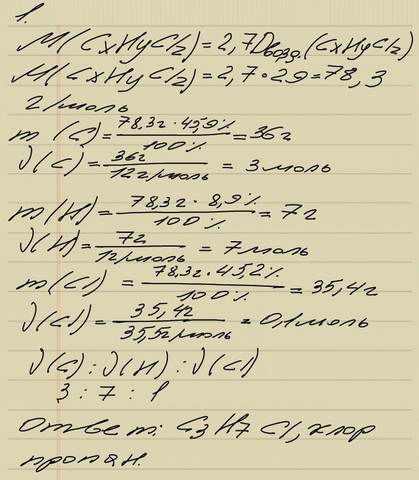 1.
M(CxHyClz)=2,7Dвозд.(CxHyClz)
M(CxHyClz)=2,7•29=78,3
г/моль
m(C)=78,3г•45,9%/100%=36г
ν(C)=36г/12г/моль=3моль
m(H)=78,3г•8,9%/100%=7г
ν(H)=7г/12/моль=7моль
m(Cl)=78,3г•45,2%/100%=35,4г
ν(Cl)=35,4г/35,5г/моль=0,1моль
ν(C):ν(H):ν(Cl)
3:7:1
Ответ: C3H7Cl, хлор
пропан.